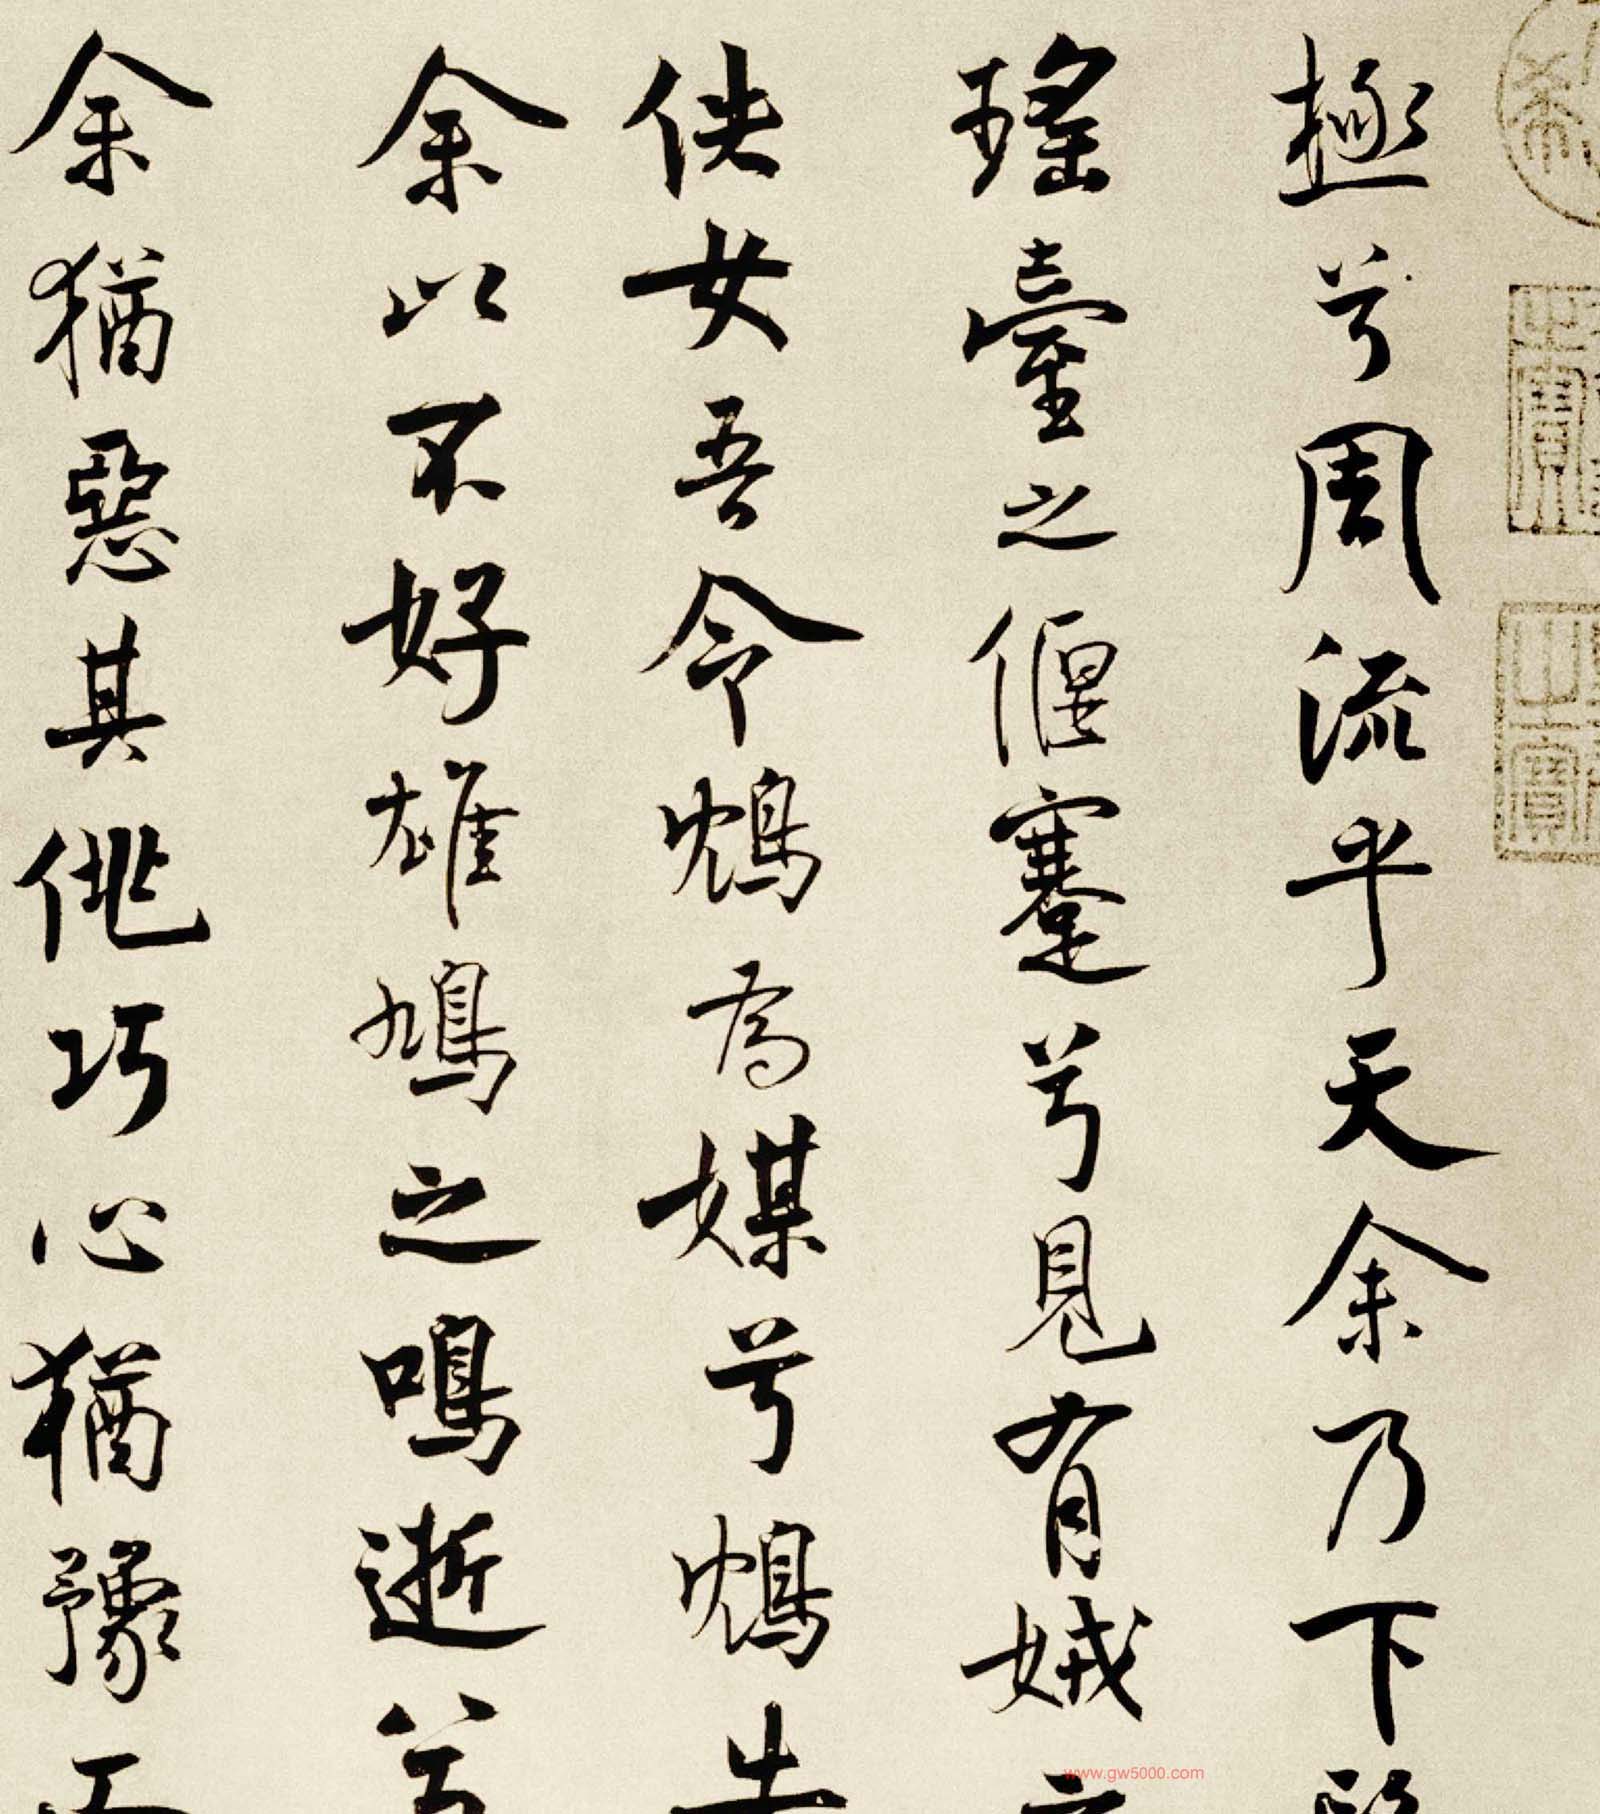 極兮周流乎天余乃下
瑤臺之偃蹇兮見有娀之
佚女吾令鴆為媒兮鴆告
余以不好雄鳩之鳴逝兮
余猶惡其佻巧心猶豫而
www.gw5000.com